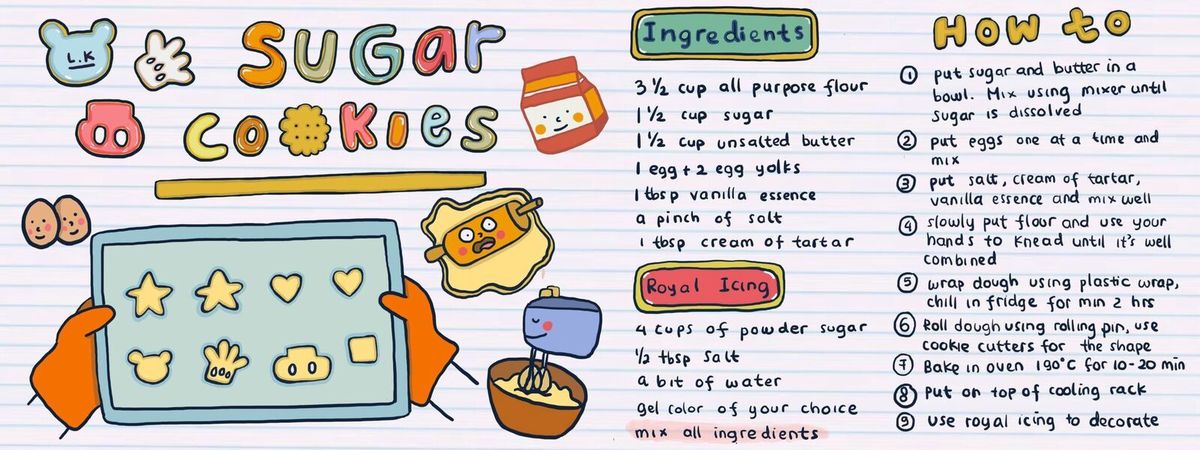 L.K
SUGar
COOKIES
Ingredients
3 ½ cup all purpose flour
1 ½ cup sugar
1 ½ cup unsalted butter
1 egg + 2 egg yolks
1 tbsp vanilla essence
a pinch of salt
1 tbsp cream of tartar
Royal Icing
4 cups of powder sugar
½ tbsp salt
a bit of water
gel color of your choice
mix all ingredients
HOW to
1 put sugar and butter in a
bowl. Mix using mixer until
sugar is dissolved
2 put eggs one at a time and
mix
3 put salt, cream of tartar,
vanilla essence and mix well
4 slowly put flour and use your
hands to knead until it's well
combined
5 wrap dough using plastic wrap,
chill in fridge for min 2 hrs
6 Roll dough using rolling pin, use
cookie cutters for the shape
7 Bake in oven 190°C for 10-20 min
8 Put on top of cooling rack
9 use royal icing to decorate